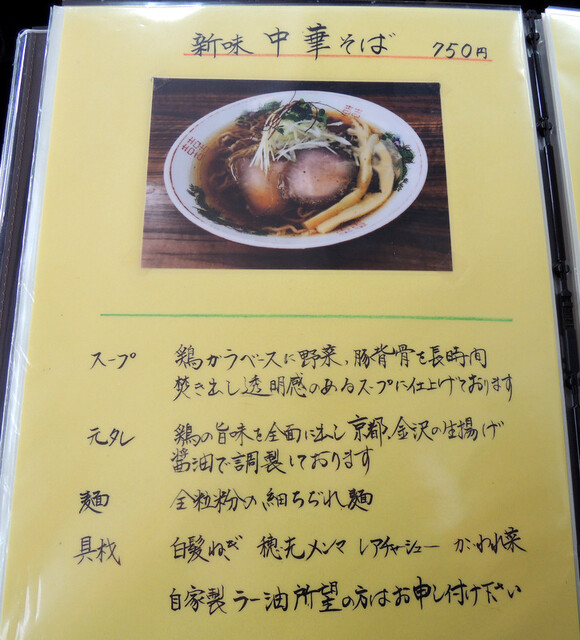 新味 中華そば 750円
スープ 鶏がらベースに野菜、豚背骨を長時間
焚き出し透明感のあるスープに仕上げております
元タレ 鶏の旨味を全面に出し京都、金沢の生揚げ
醤油で調製しております
麺 全粒粉の細ちぢれ麺
具材 白髪ねぎ 穂先メンマ レアチャーシュー かいわれ菜
自家製ラー油所望の方はお申し付け下さい